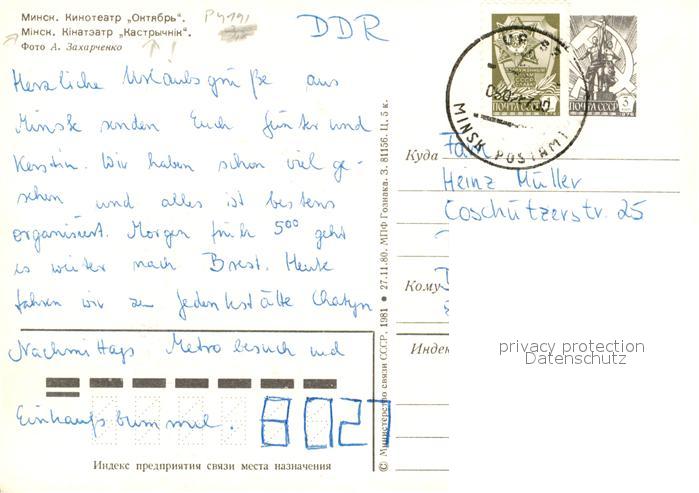 Минск. Кинотеатр „Октябрь“.
Мінск. Кінатэатр „Кастрычнік“.
Фото А. Захарченко
DDR
Herzliche Urlaubsgrüße aus
Minsk senden Euch Günter und
Kerstin. Wir haben schon viel ge-
sehen und alles ist bestens
organisiert. Morgen früh 5⁰⁰ geht
es weiter nach Brest. Heute
fahren wir zu Gedenkstätte Chatyn
Nachmittags Metrobesuch und
Einkaufsbummel.
8027
Индекс предприятия связи места назначения
© Министерство связи СССР. 1981 ● 27.11.80. МПФ Гознака. З. 81156. Ц. 5 к.
ПОЧТА СССР
ПОЧТА СССР
MINSK POSTAMT
Куда
Heinz Müller
Coschützerstr. 25
Кому
Индек
privacy protection
Datenschutz